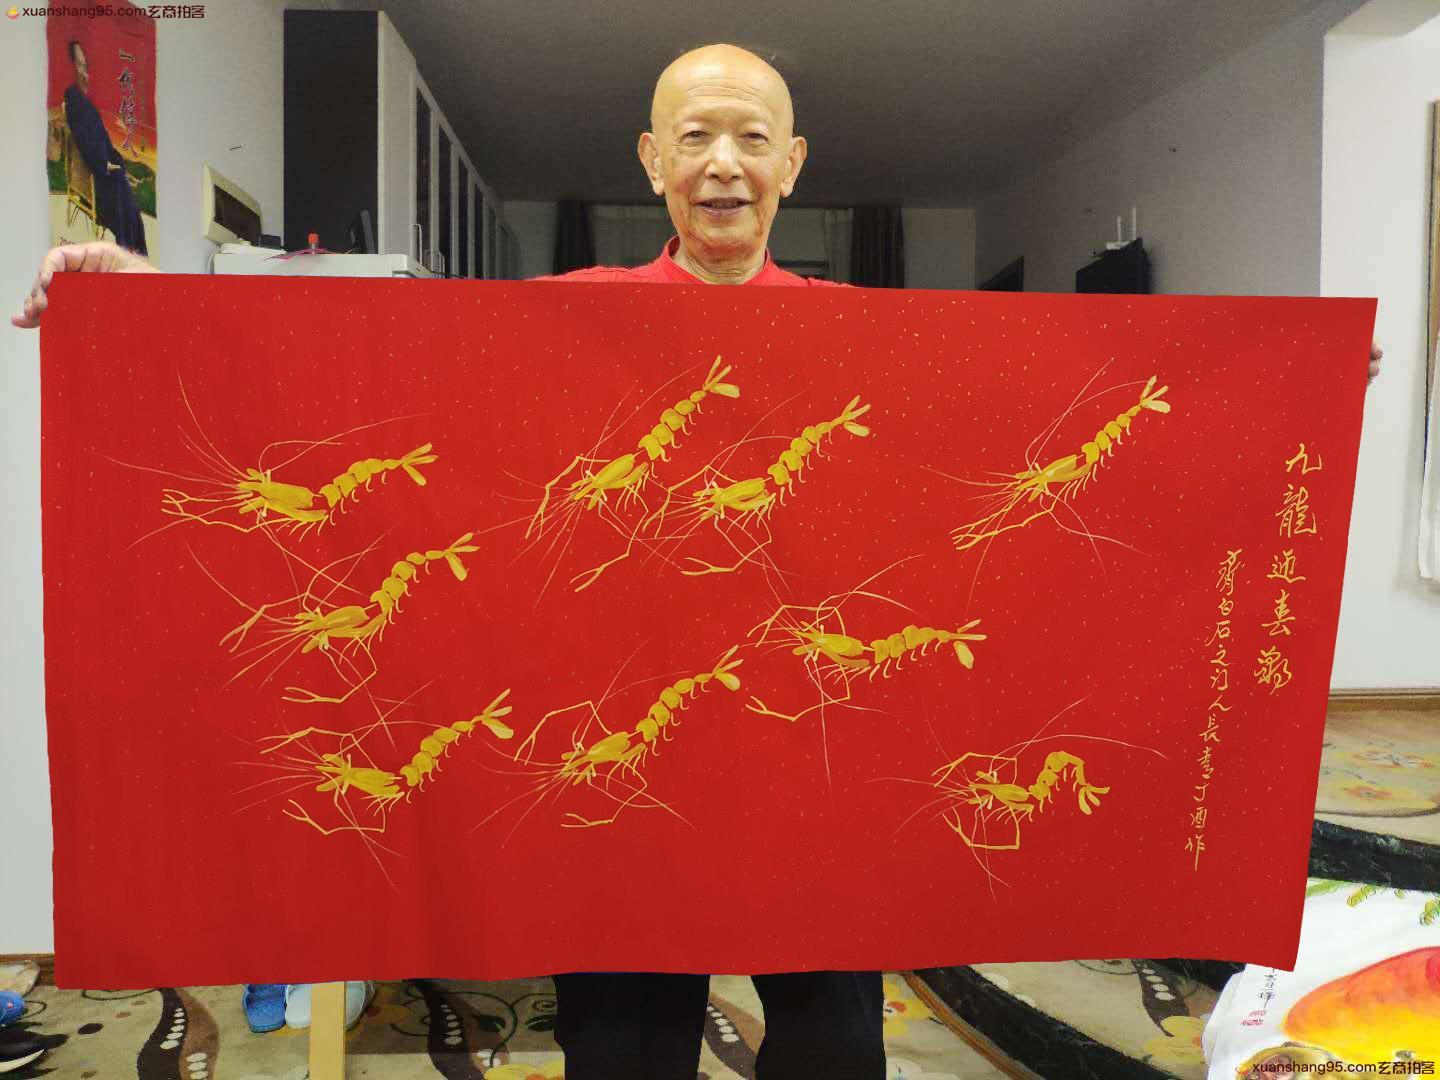 xuanshang95.com玄商拍客
一代伟人
九龍迎春圖
齊白石之门人長青丁酉作
xuanshang95.com玄商拍客